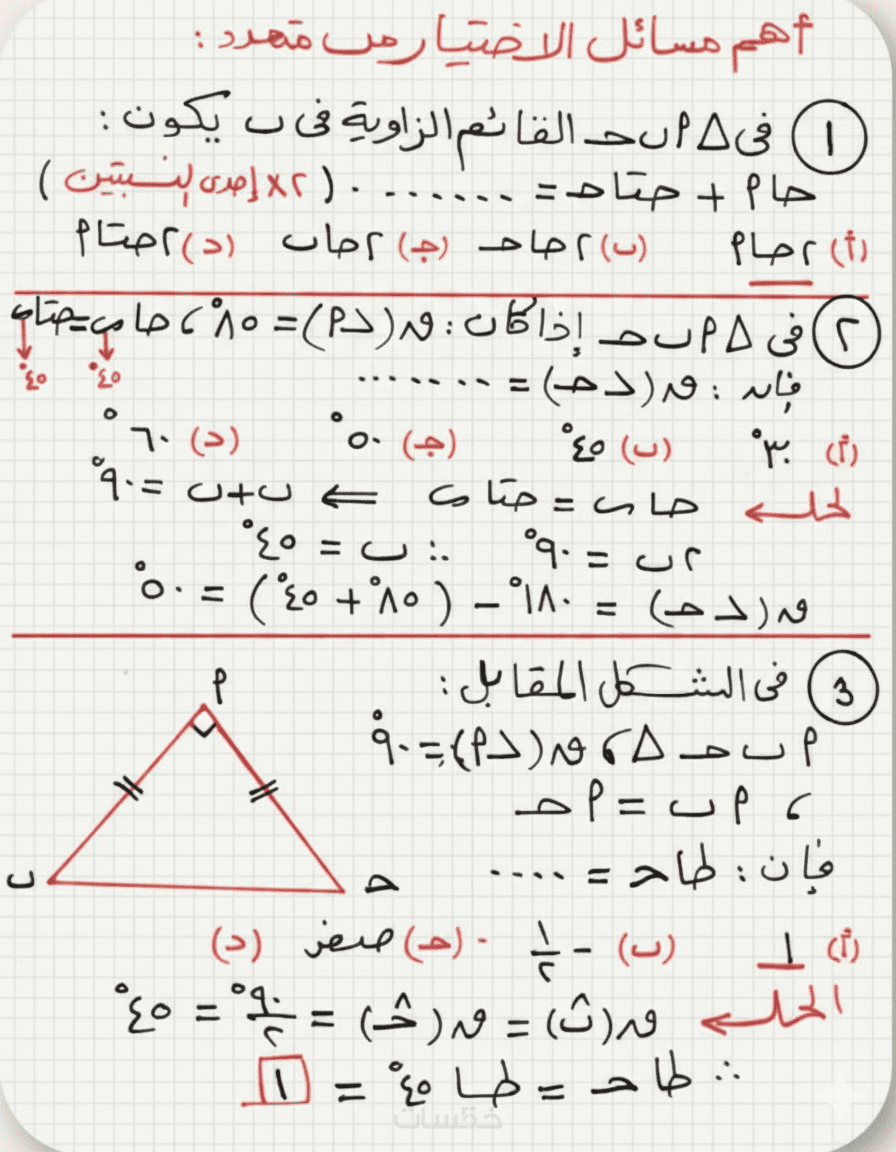 أهم مسائل الاختيار من متعدد :
١ فى △ م ب حـ القائم الزاوية فى ب يكون :
حا م + حتا حـ = ....... . ( ٢ × إحدى النسبتين )
(أ) ٢ حا م (ب) ٢ حا حـ (جـ) ٢ حا ب (د) ٢ حتا م
٢ فى △ م ب حـ إذا كان : ق (∠ م) = ٨٥° ، حا ب = حتا ب
٤٥° ٤٥°
فإن : ق (∠ حـ) = .......
(أ) ٣٠° (ب) ٤٥° (جـ) ٥٠° (د) ٦٠°
الحل ← حا ب = حتا ب ⇐ ب + ب = ٩٠°
٢ ب = ٩٠° ∴ ب = ٤٥°
ق (∠ حـ) = ١٨٠° − ( ٨٥° + ٤٥° ) = ٥٠°
3 فى الشكل المقابل :
م ب حـ △ ، ق (∠ م) = ٩٠°
، م ب = م حـ
فإن : طا حـ = ....
(أ) ١ (ب) − ١/٢ (حـ) صفر (د)
الحل ← ق (ب̂) = ق (حـ̂) = ٩٠°/٢ = ٤٥°
∴ طا حـ = طا ٤٥° = ١
م
ب
حـ